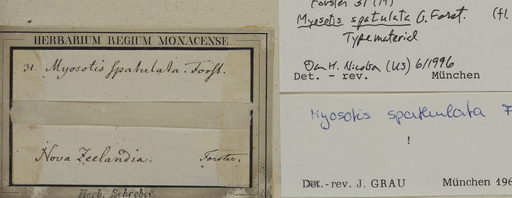 HERBARIUM REGIUM MONACENSE
31. Myosotis Spatulata. Forst.
Nova Zeelandia. Forster.
Herb. Schreber
Forster 31 (M)
Myosotis spatulata G. Forst. (fl.
Type material
Dan H. Nicolson (US) 6/1996
Det. - rev. München
Myosotis spathulata F
!
Det.-rev. J. GRAU München 196